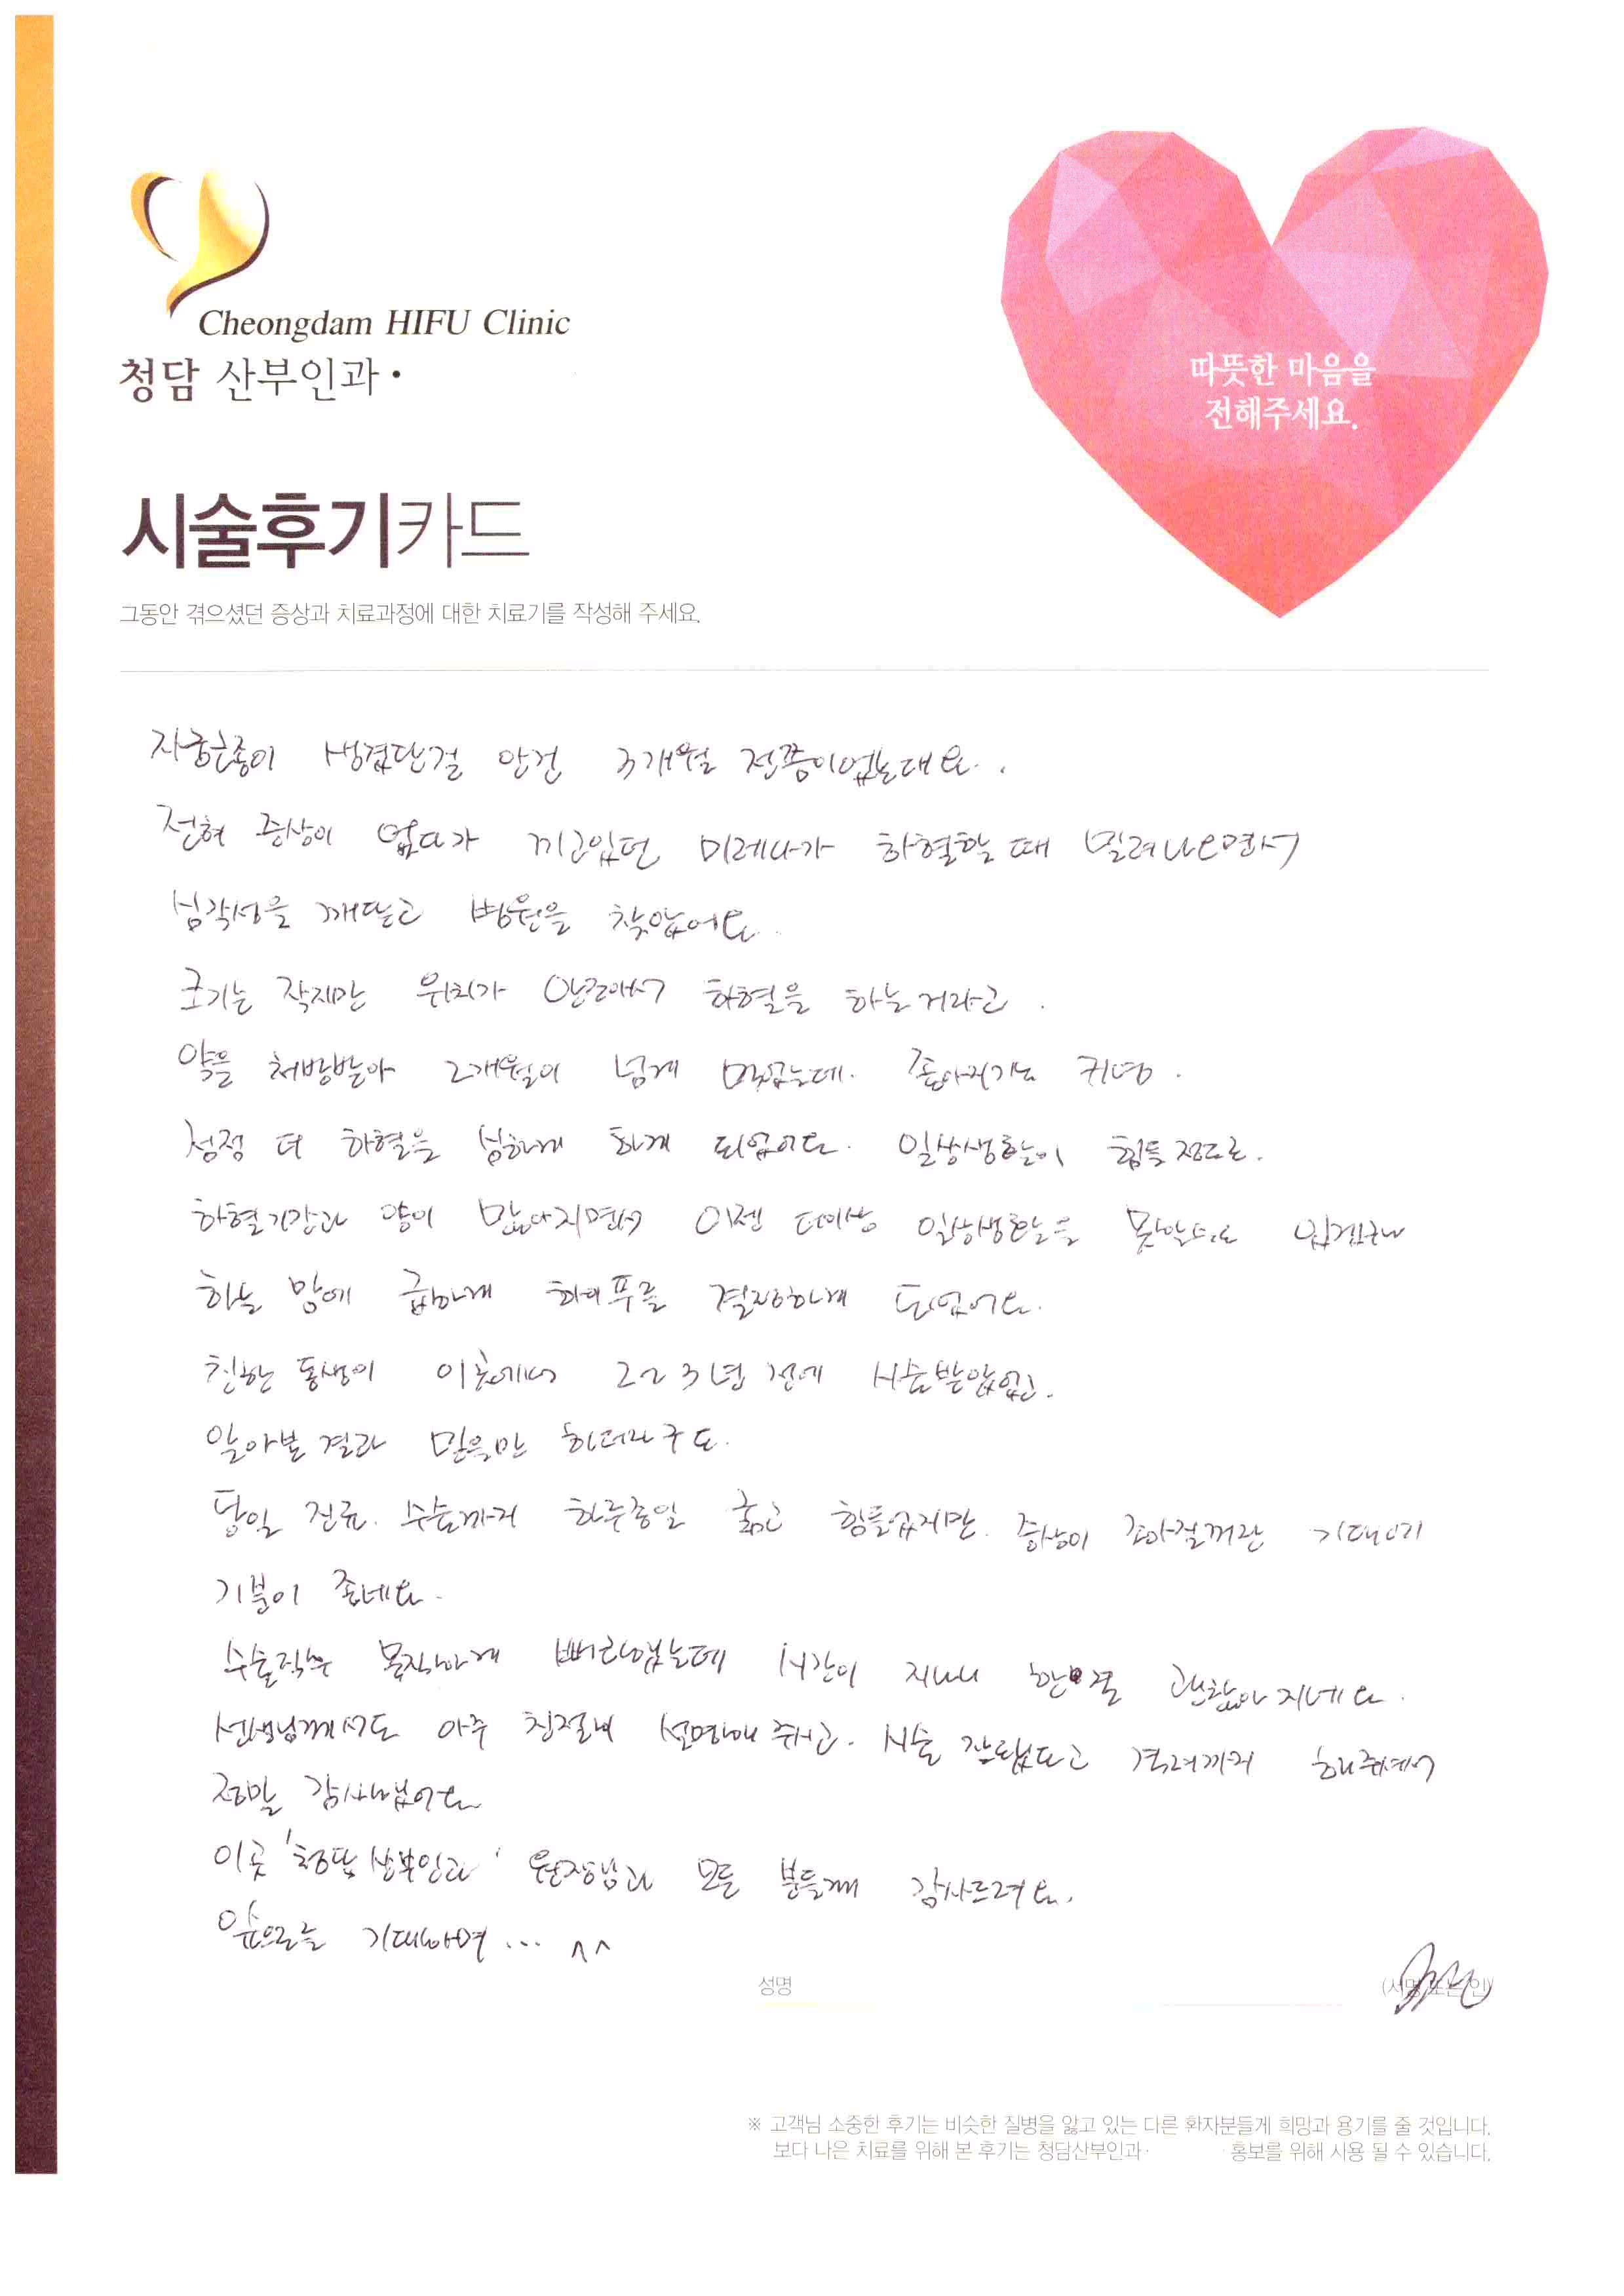 Cheongdam HIFU Clinic
청담 산부인과·
따뜻한 마음을
전해주세요.
시술후기카드
그동안 겪으셨던 증상과 치료과정에 대한 치료기를 작성해 주세요.
자궁근종이 생겼단걸 안건 3개월 전쯤이었는데요..
전혀 증상이 없다가 끼고있던 미레나가 하혈할 때 밀려나오면서
심각성을 깨닫고 병원을 찾았어요.
크기는 작지만 위치가 안좋아서 하혈을 하는거라고.
약을 처방받아 2개월이 넘게 먹었는데. 좋아지기는 커녕.
점점 더 하혈을 심하게 하게 되었어요. 일상생활이 힘들 정도로.
하혈기간과 양이 많아지면서 이젠 더이상 일상생활을 못할수도 있겠구나
하는 맘에 급하게 하이푸를 결정하게 되었어요.
친한 동생이 이곳에서 2~3년 전에 시술받았었고.
알아본 결과 믿을만 하더라구요.
당일 진료. 수술까지 하루종일 굶고 힘들었지만. 증상이 좋아질꺼란 기대에
기분이 좋네요.
수술직후 묵직하게 뻐근했는데 1시간이 지나니 한결 괜찮아지네요.
선생님께서도 아주 친절히 설명해 주시고. 시술 잘됐다고 격려까지 해주셔서
정말 감사했어요
이곳 '청담산부인과' 원장님과 모든 분들께 감사드려요.
앞으로를 기대하며... ^^
성명
(서명 또는 인)
※ 고객님 소중한 후기는 비슷한 질병을 앓고 있는 다른 환자분들게 희망과 용기를 줄 것입니다.
보다 나은 치료를 위해 본 후기는 청담산부인과· 홍보를 위해 사용 될 수 있습니다.